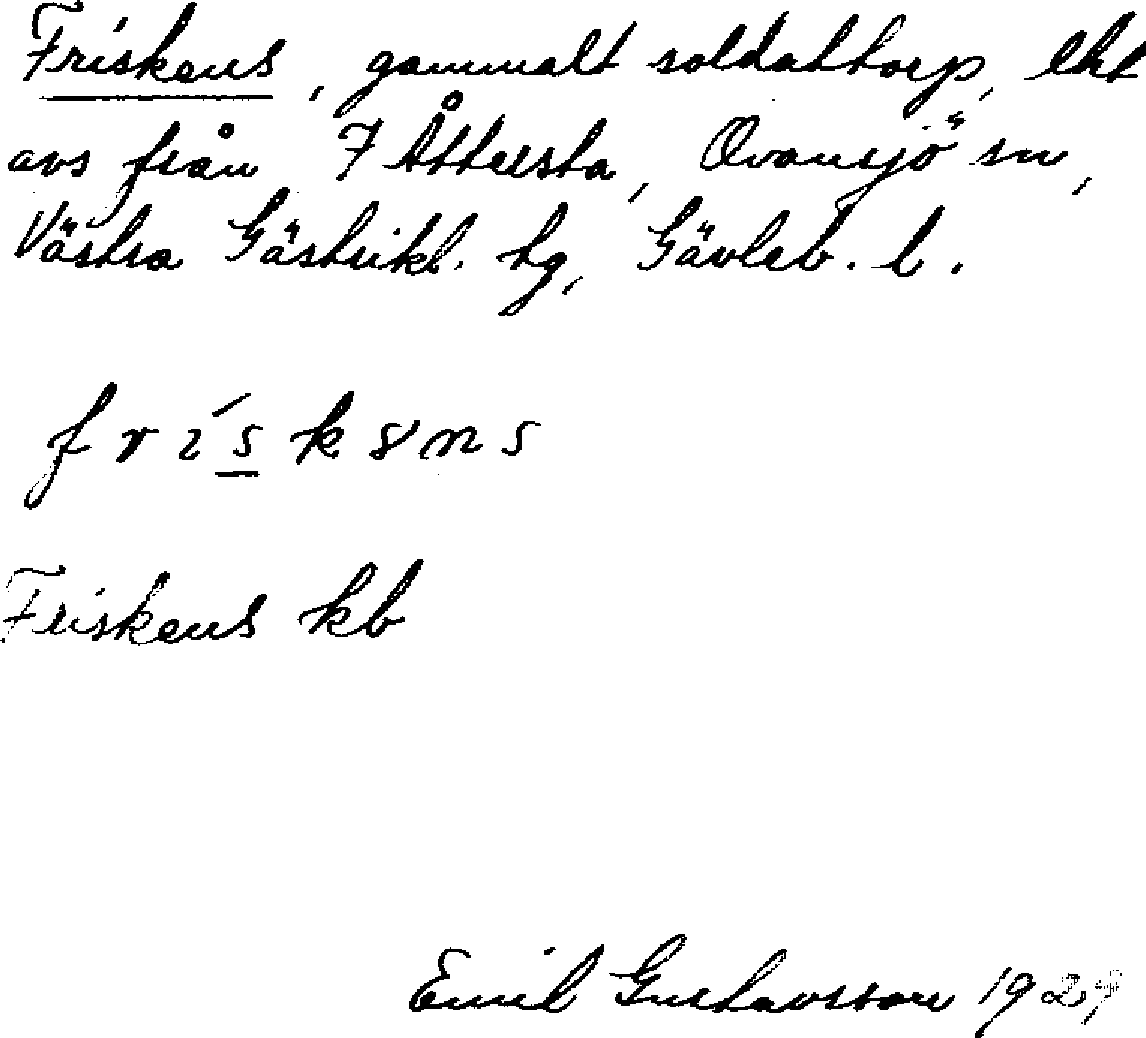 Friskens, gammalt soldattorp, lht
avs från 7 Åttersta, Ovansjö sn,
Västra Gästrikl. hg, Gävleb. l.
frískəns
Friskens kb
Emil Gustavsson 1927